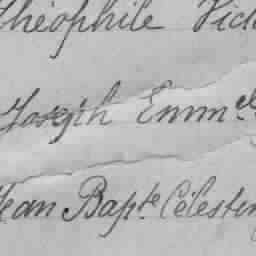 Théophile Vict
Joseph Emm.el
Jean Bapt.e Célestin